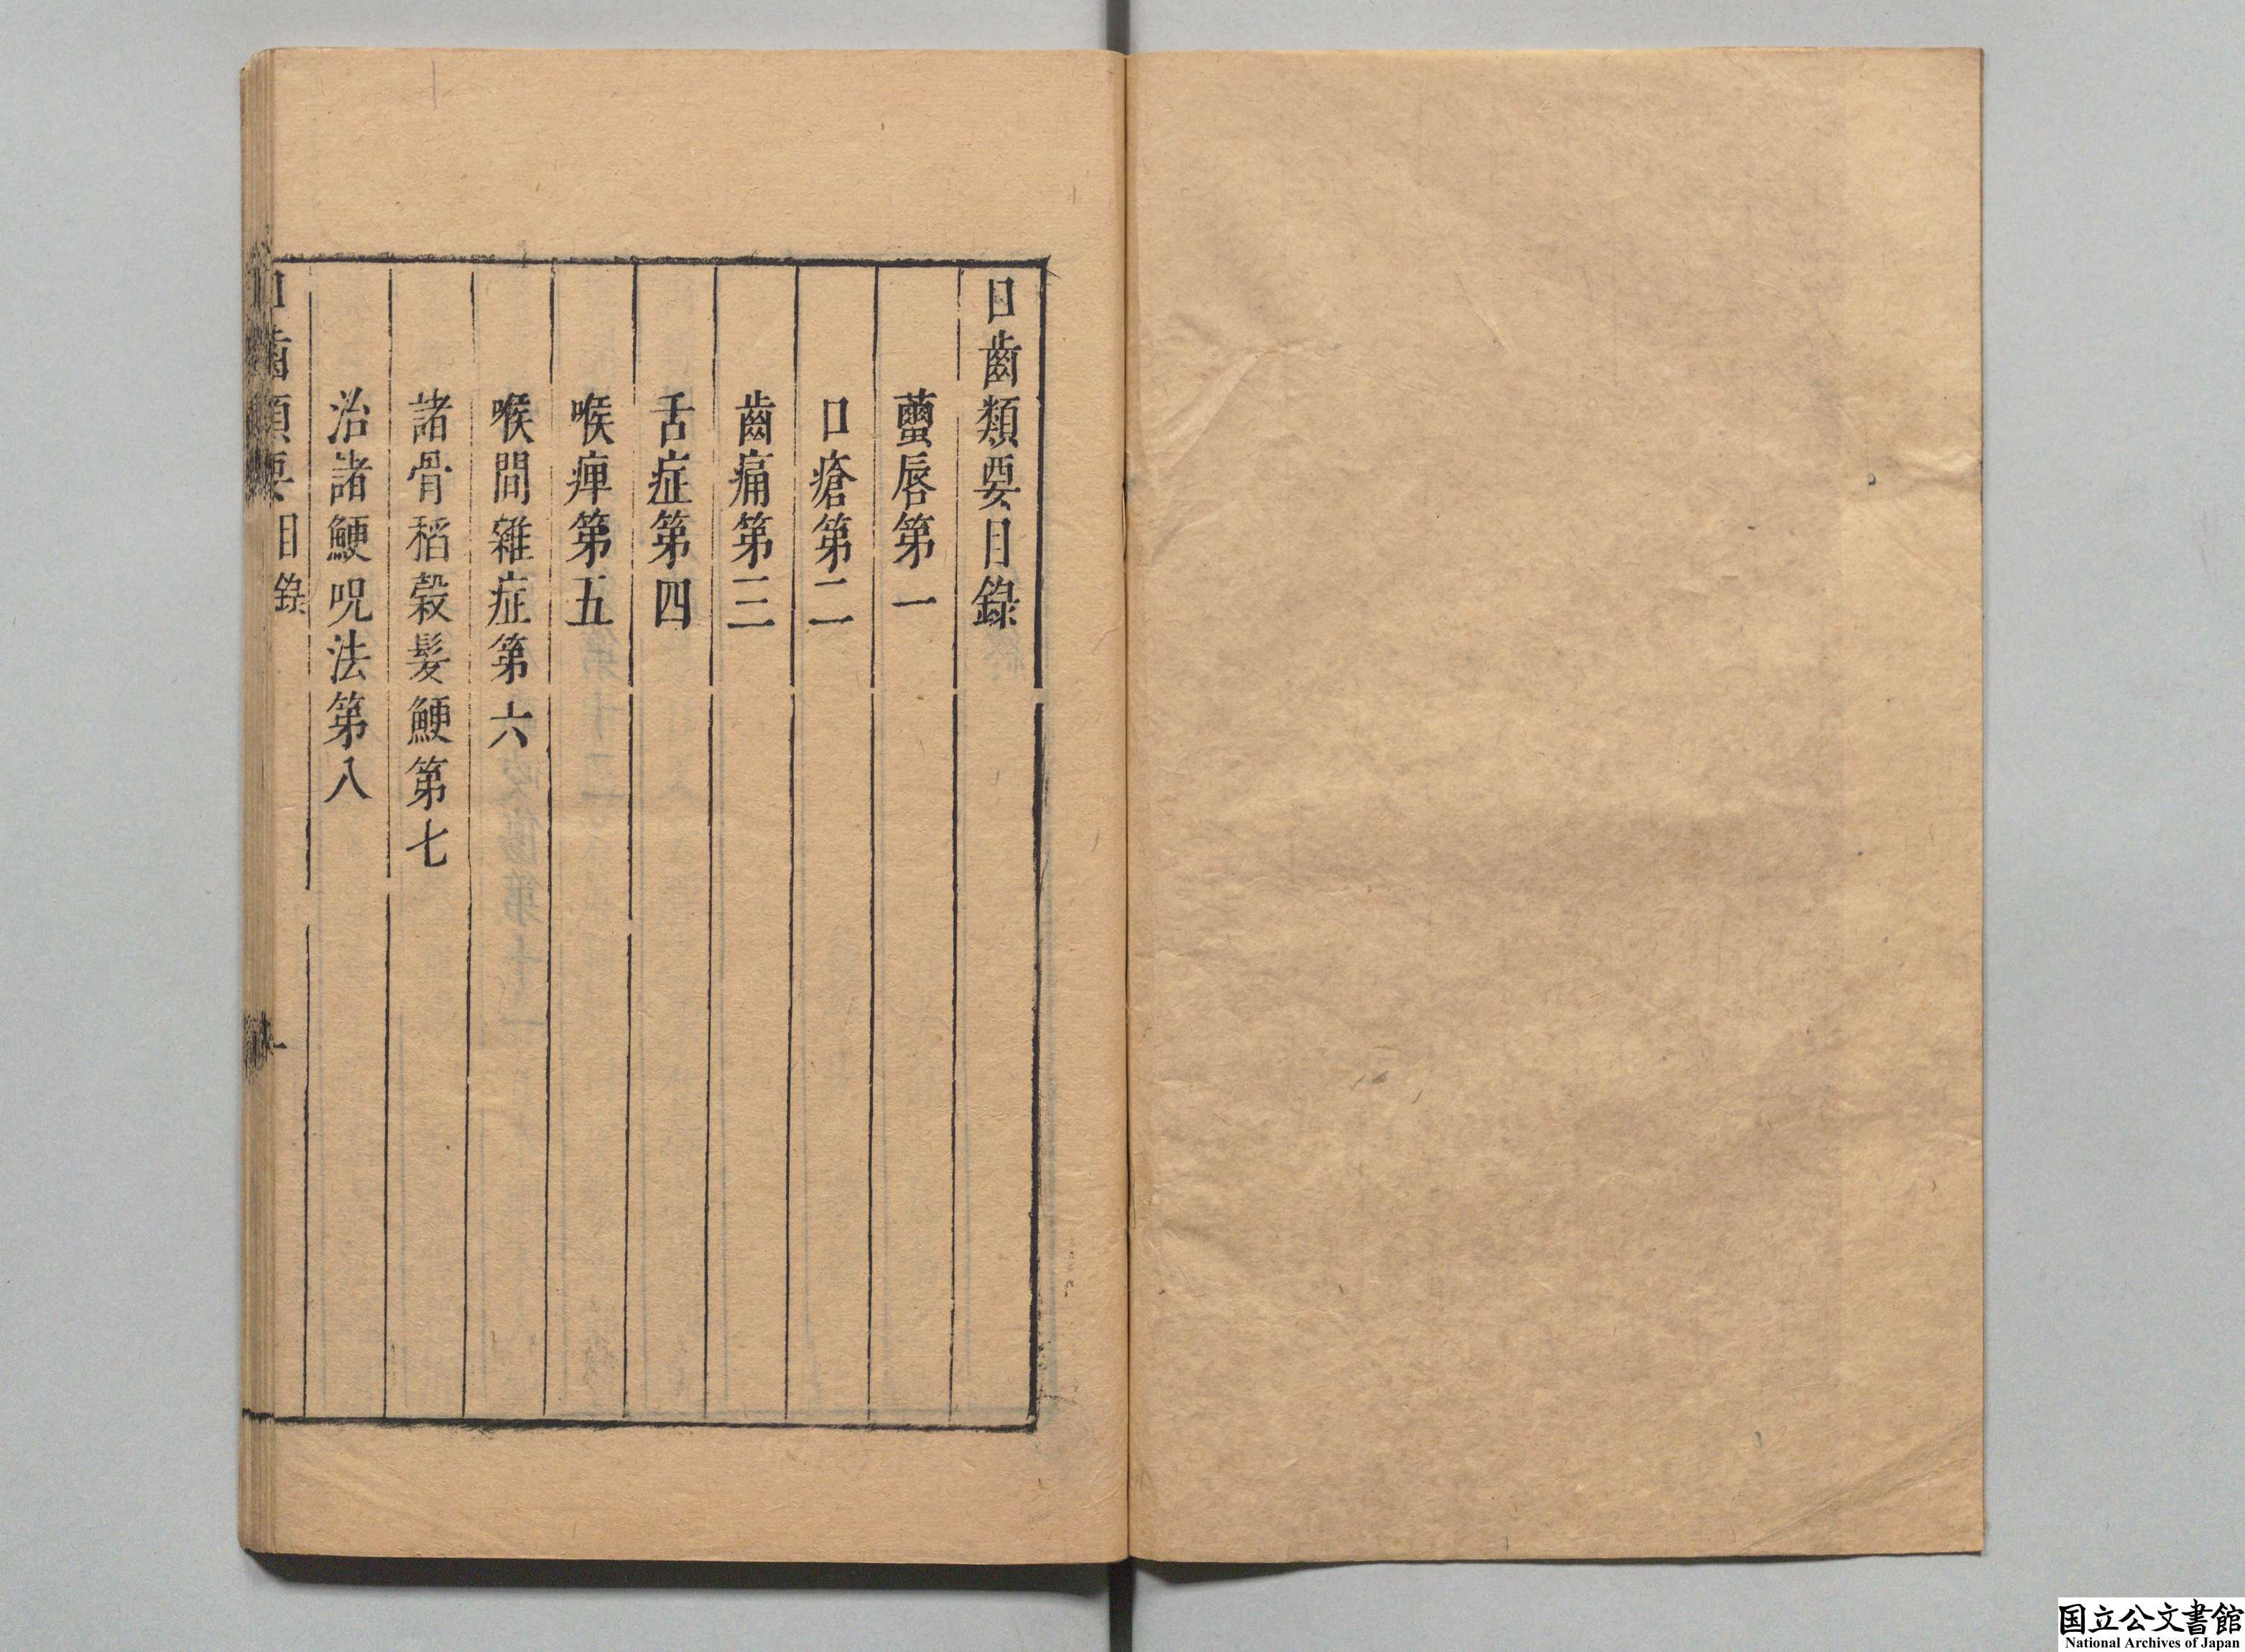 口齒類要目錄
蠒唇第一
口瘡第二
齒痛第三
舌症第四
喉痺第五
喉間雜症第六
諸骨稻穀髮鯁第七
治諸鯁呪法第八
口齒類要目錄
一
国立公文書館
National Archives of Japan